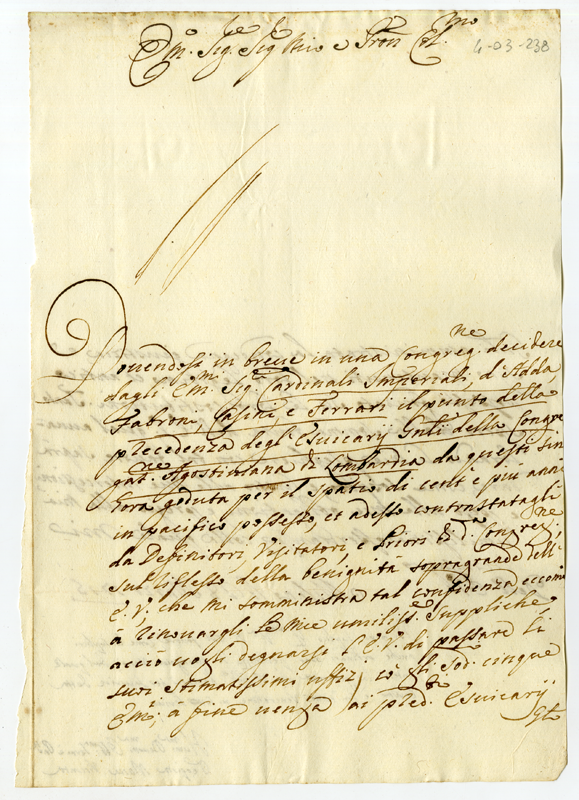 Em.º Sig.re Sig.re P̃rone e P̃ron Col.mo
4-03-238
Dovendosi in breve in una Congreg.ne decidere
dagli Em.mi Sig.ri Cardinali Imperiali, d'Adda
Fabroni, Casini e Ferrari il punto della
precedenza degl'Exvicarij Gnli della Congre
gat.ne Agostiniana di Lombardia da questi sin
hora goduta per il spatio di cent'e più anni
in pacifico possesso, et adesso contrastatagli
da Definitori, Visitatori e Priori di d.ta Congreg.ne
sul riflesso della benignità sopragrande dell'
E. V. che mi somministra tal confidenza, eccomi
à rinovargli le mie umiliss.e suppliche
acciò vogli degnarsi l'E.V. di passare li
suoi stimatissimi uffizj cò li sod.i cinque
Em.i, à fine venga ai pred.ti Exvicarij
Gli